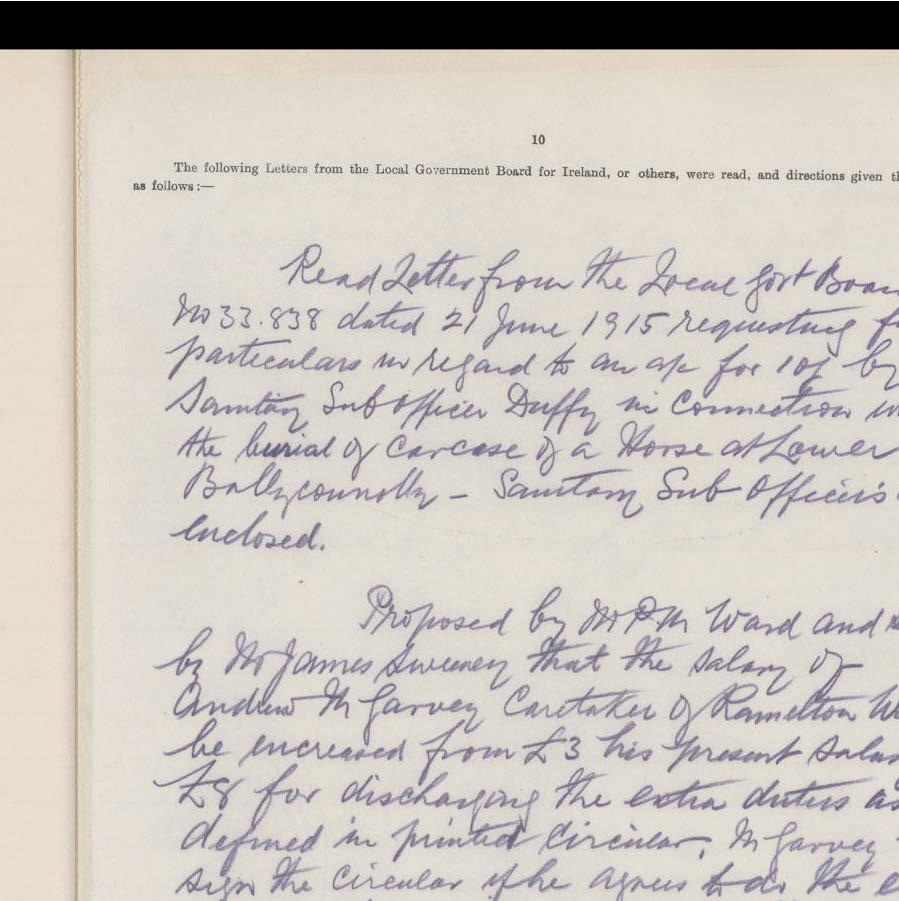 10
The following Letters from the Local Government Board for Ireland, or others, were read, and directions given th
as follows :—
Read Letter from the Local Govt Boar
No 33.838 dated 21 June 1915 requesting f
particulars in regard to an a/c for 10/ by
Sanitary Sub Officer Duffy in connection w
the burial of carcase of a Horse at Lower
Ballyconnolly – Sanitary Sub Officer's
enclosed.
Proposed by Mr P.M. Ward and
by Mr James Sweeney that the salary of
Andrew McGarvey Caretaker of Ramelton W
be increased from £3 his present Salar
£8 for discharging the extra duties as
defined in printed Circular, McGarvey
sign the Circular if he agrees to do the e